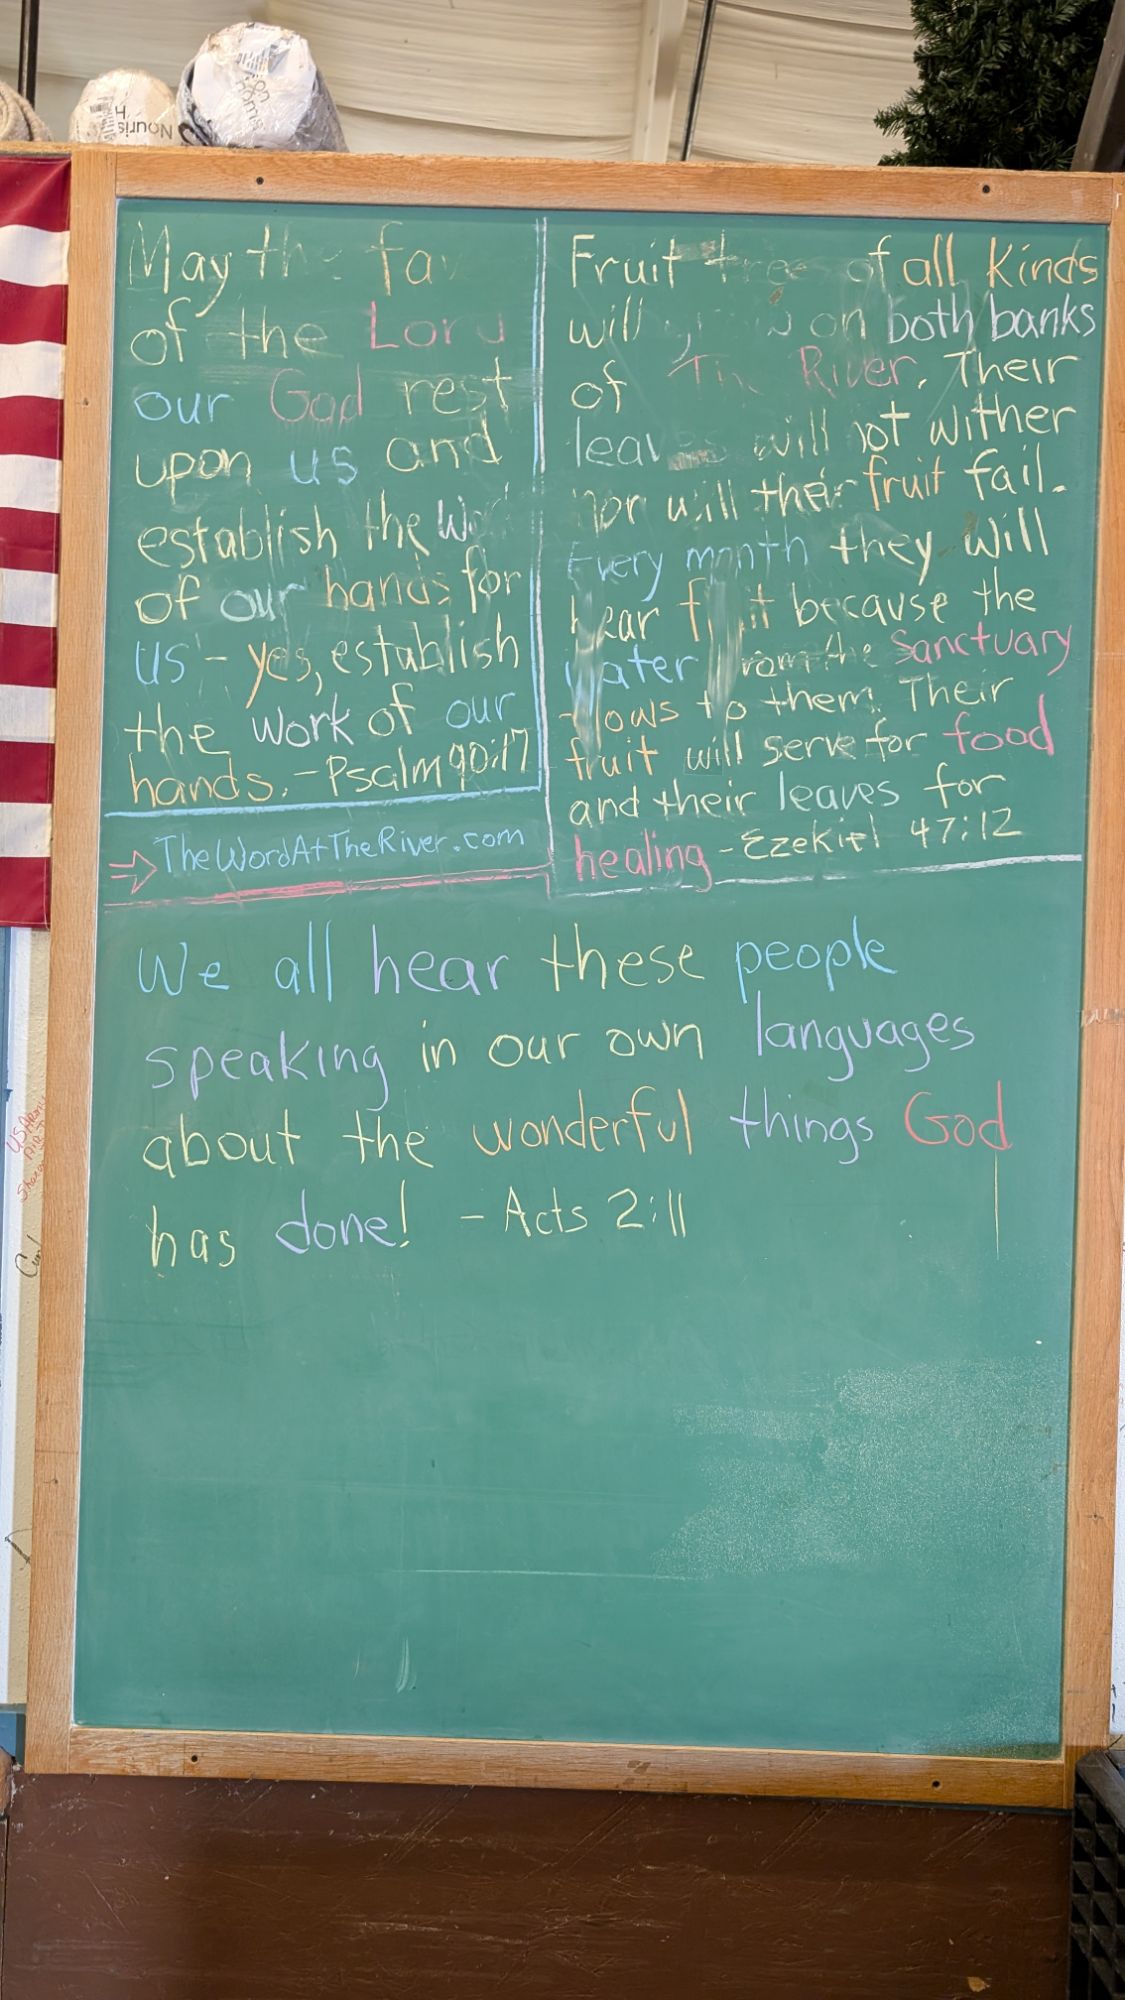 May the fa
of the Lord
our God rest
upon us and
establish the Wo
of our hands for
us - yes, establish
the work of our
hands. - Psalm 90:17
TheWordAtTheRiver.com
Fruit tree of all Kinds
will on both banks
of The River. Their
leaves will not wither
nor will their fruit fail.
Every month they will
bear fruit because the
water from the Sanctuary
flows to them. Their
fruit will serve for food
and their leaves for
healing - Ezekiel 47:12
We all hear these people
speaking in our own languages
about the wonderful things God
has done! - Acts 2:11
Nouris
H
US Army